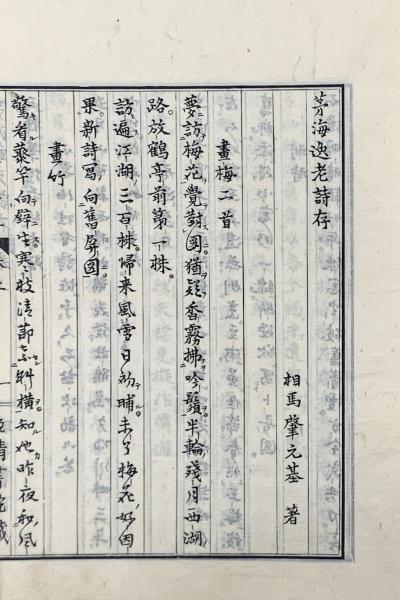 芳海逸老詩存
相馬肇元基 著
畫梅二首
夢訪梅花覺對圖猶疑香霧拂吟鬚半輪殘月西湖
路放鶴亭前第一株
訪遍江湖三百株歸来風雪日初晡未了梅花好因
果新詩寫向舊屏圖
畫竹
驚看藜竿向壁生寒枝清節 斜横知他昨夜和風